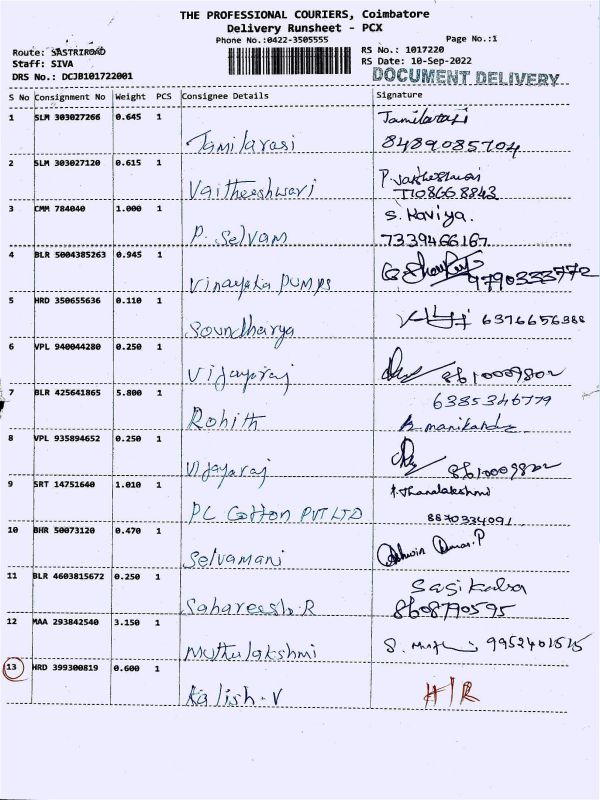 THE PROFESSIONAL COURIERS, Coimbatore
Delivery Runsheet - PCX
Phone No.:0422-3505555
Page No.:1
Route: SASTRIROAD
RS No.: 1017220
Staff: SIVA
RS Date: 10-Sep-2022
DRS No.: DCJB101722001
DOCUMENT DELIVERY
S No Consignment No Weight PCS Consignee Details Signature
1 SLM 303027266 0.645 1 Tamilarasi Tamilarasi
8489085704
2 SLM 303027120 0.615 1 Vaitheeshwari
3 CMM 784040 1.000 1 P. Selvam S. Kaviya.
7339466167
4 BLR 5004385263 0.945 1 Vinayaka PUMPS 9790333772
5 HRD 350655636 0.110 1 Soundharya 6376656388
6 VPL 940044280 0.250 1 Vijayaraj 8610009802
7 BLR 425641865 5.800 1 Rohith 6385346779
8 VPL 935894652 0.250 1 Vijayaraj 8610009802
9 SRT 14751640 1.010 1 PL Cotton PVT LTD Thanalakshmi
8870334091
10 BHR 50073120 0.470 1 Selvamani
11 BLR 4603815672 0.250 1 Sahareessh.R Sasikala
8608790595
12 MAA 293842540 3.150 1 Muthulakshmi 9952401515
13 HRD 399300819 0.600 1 Kalish.V H/R